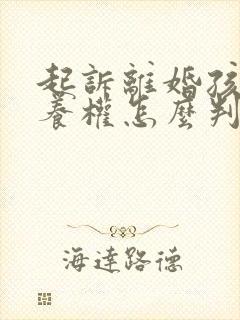 起訴離婚孩
養權怎麼判
海達路德